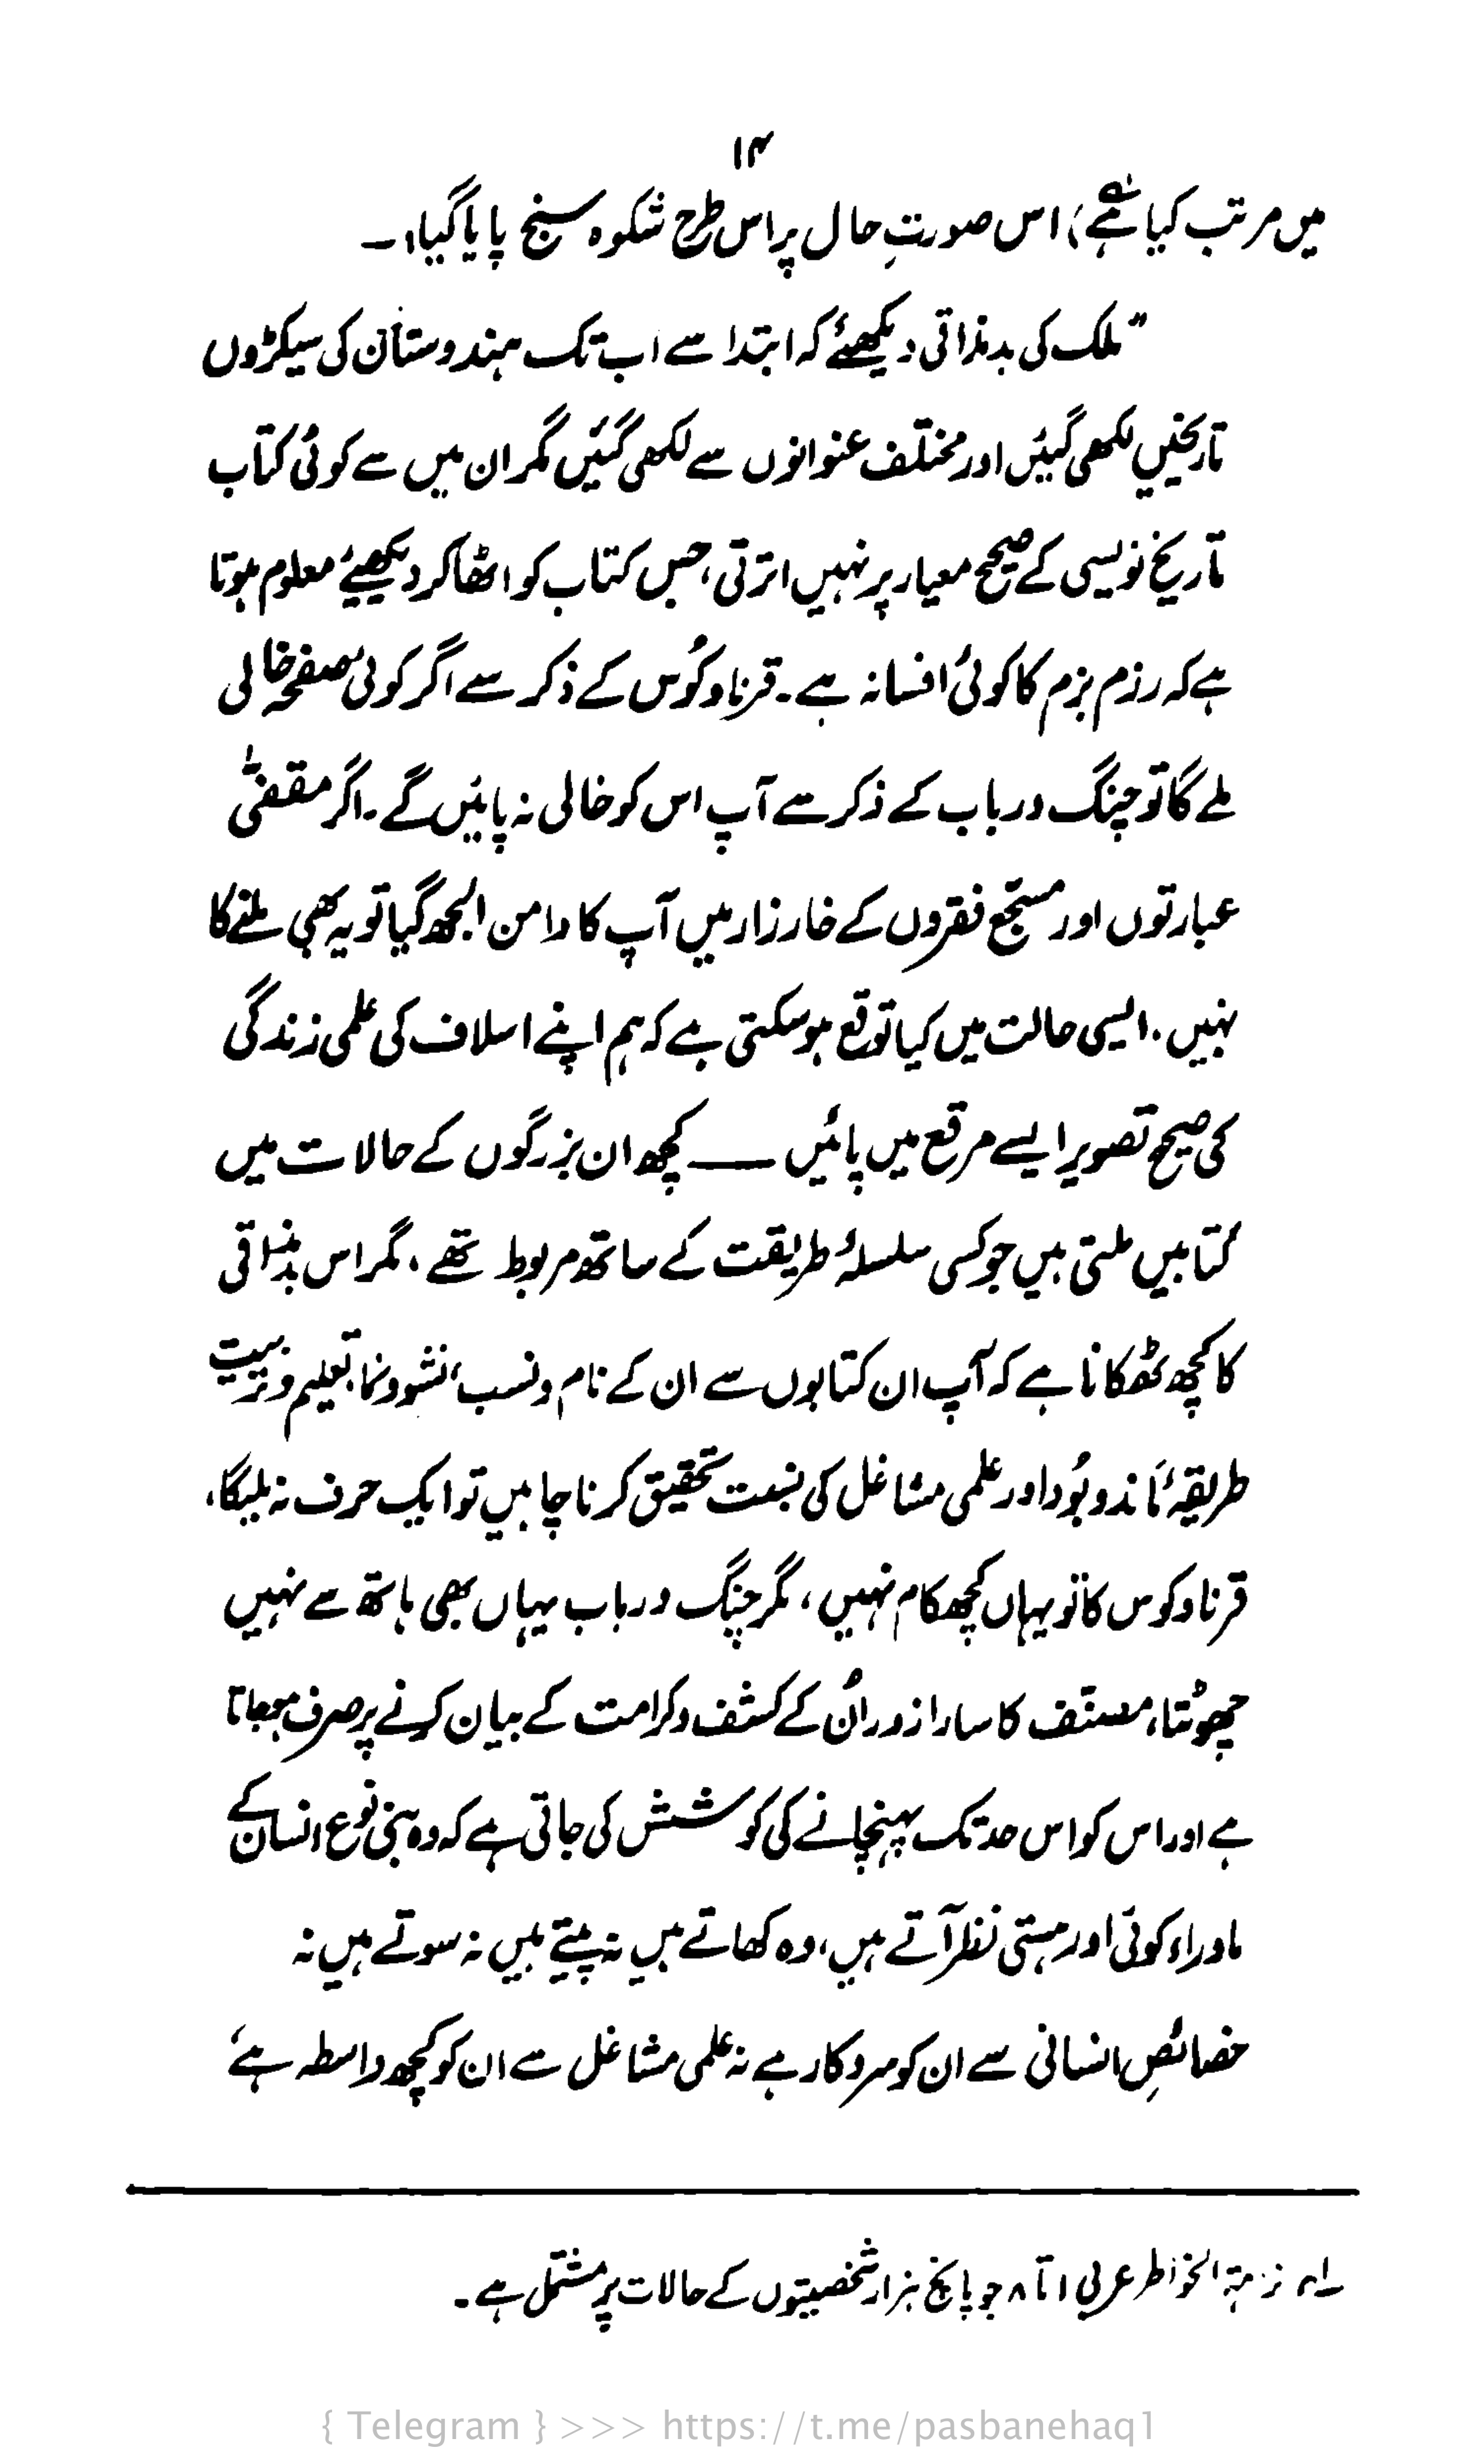 ۱۴
میں مرتب کیا ہے۱ے) اس صورتِ حال پر اس طرح شکوہ سنج پایا گیا:۔
"ملک کی بدمذاقی دیکھئے کہ ابتدا سے اب تک ہندوستان کی سیکڑوں
تاریخیں لکھی گیئں اور مختلف عنوانوں سے لکھی گئیں مگر ان میں سے کوئی کتاب
تاریخ نویسی کے صحیح معیار پر نہیں اترتی، جس کتاب کو اٹھا کر دیکھیئے معلوم ہوتا
ہے کہ رزم بزم کا کوئی افسانہ ہے۔ قرنا و کُوس کے ذکر سے اگر کوئی صفحہ خالی
ملے گا تو چنگ و رباب کے ذکر سے آپ اس کو خالی نہ پائیں گے۔ اگر مقفیٰ
عبارتوں اور مسجّع فقروں کے خارزار میں آپ کا دامن الجھ گیا تو یہ بھی ملنے کا
نہیں۔ ایسی حالت میں کیا توقع ہوسکتی ہے کہ ہم اپنے اسلاف کی علمی زندگی
کی صحیح تصویر ایسے مرقع میں پائیں —— کچھ ان بزرگوں کے حالات میں
کتابیں ملتی ہیں جو کسی سلسلۂ طریقت کے ساتھ مربوط تھے، مگر اس بدمذاقی
کا کچھ ٹھکانا ہے کہ آپ ان کتابوں سے ان کے نام و نسب، نشو و نما، تعلیم و تربیت
طریقۂ ماند و بُود اور علمی مشاغل کی نسبت تحقیق کرنا چاہیں تو ایک حرف نہ ملیگا،
قرنا و کوس کا تو یہاں کچھ کام نہیں، مگر چنگ و رباب یہاں بھی ہاتھ سے نہیں
چھوٹتا، مصنّف کا سارا زور اُن کے کشف و کرامت کے بیان کرنے پر صرف ہوجاتا
ہے اور اس کو اس حد تک پہنچانے کی کوشش کی جاتی ہے کہ وہ بنی نوع انسان کے
ماوراء کوئی اور ہستی نظر آتے ہیں، وہ کھاتے ہیں نہ پیتے ہیں نہ سوتے ہیں نہ
خصائصِ انسانی سے ان کو سروکار ہے نہ علمی مشاغل سے ان کو کچھ واسطہ ہے،
۱ے نزہۃ الخواطر عربی ۱ تا ۸ جو پانچ ہزار شخصیتوں کے حالات پر مشتمل ہے۔
{ Telegram } >>> https://t.me/pasbanehaq1